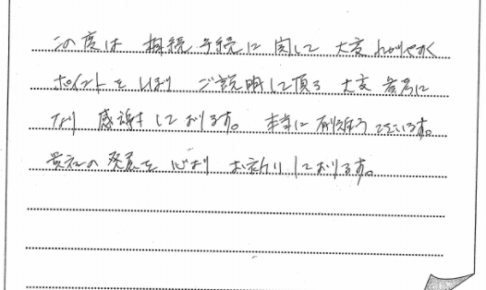 この度は 相続手続に関して 大変わかりやすく
ポイントをしぼり ご説明して頂き 大変参考に
なり 感謝しております。 本当に有難うございます。
貴社の発展を 心より お祈りしております。